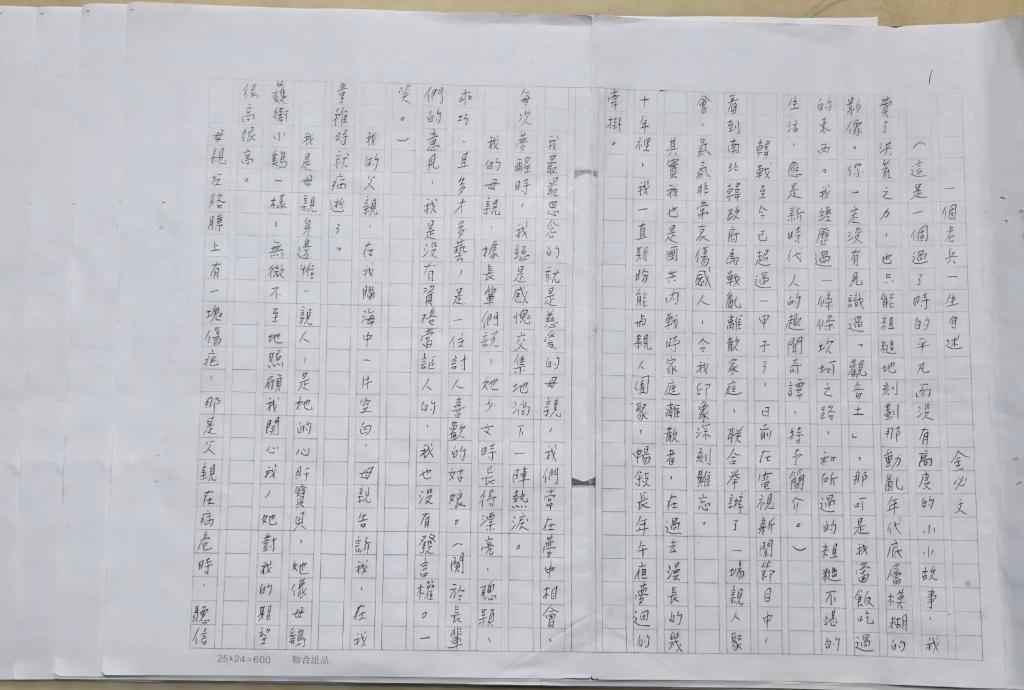 1
一個老兵一生自述　　金必文
（這是一個過了時的平凡而沒有高度的小小故事，我
費了洪荒之力，也只能粗糙地刻劃那動亂年代底層模糊的
影像。你一定沒有見識過「觀音土」，那可是我當飯吃過
的東西。我經歷過一條條坎坷之路，和所過的粗糙不堪的
生活，應是新時代人的趣聞奇譚，特予簡介。）
韓戰至今已超過一甲子了，日前在電視新聞節目中，
看到南北韓政府為戰亂離散家庭，联合举辦了一場親人聚
會，氣氛非常哀傷感人，令我印象深刻難忘。
其實我也是國共內戰時家庭離散者，在過去漫長的幾
十年裡，我一直期盼能與親人團聚，暢敍長年午夜夢迴的
牽掛。
我最最思念的就是慈爱的母親，我們常在夢中相會，
每次夢醒時，我總是感愧交集地淌下一陣熱淚。
我的母親，據長輩們說，她少女時長得漂亮、聰穎、
乖巧、且多才多藝，是一位討人喜歡的姑娘。（關於長輩
們的意見，我是沒有資格當証人的，我也沒有發言權。一
笑。）
我的父親，在我腦海中一片空白，母親告訴我，在我
童稚時就病逝了。
我是母親身邊惟一親人，是她的心肝寶貝，她像母鷄
護衛小鷄一樣，無微不至地照顧我関心我，她對我的期望
很高很高。
母親左胳膊上有一塊傷疤，那是父親在病危時，聽信
25×24=600　聯合紙品